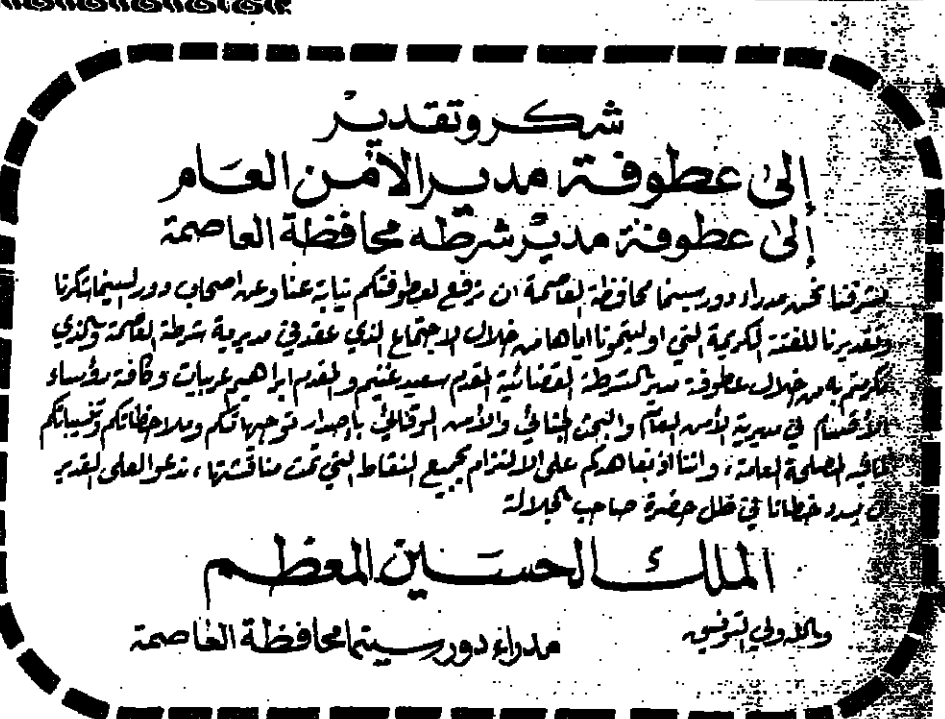 شكر وتقدير
إلى عطوفة مدير الأمن العام
إلى عطوفة مدير شرطه محافظة العاصمة
يشرفنا نحن مدراء دور سينما محافظة العاصمة ان نرفع لعطوفتكم نيابة عنا وعن اصحاب دور السينما شكرنا
وتقديرنا للفتة الكريمة التي اوليتمونا اياها من خلال الاجتماع الذي عقد في مديرية شرطة العاصمة والذي
تكرمتم به من خلال عطوفة مدير الشرطة القضائية المقدم سعيد غنيم والمقدم ابراهيم عربيات وكافة رؤساء
الأقسام في مديرية الأمن العام والبحث الجنائي والأمن الوقائي باصدار توجيهاتكم وملاحظاتكم
لما فيه المصلحة العامة، واننا اذ نعاهدكم على الالتزام بجميع النقاط التي تمت مناقشتها، ندعو العلي القدير
ان يسدد خطانا في ظل حضرة صاحب الجلالة
الملك الحسين المعظم
وبالله ولي التوفيق
مدراء دور سينما محافظة العاصمة